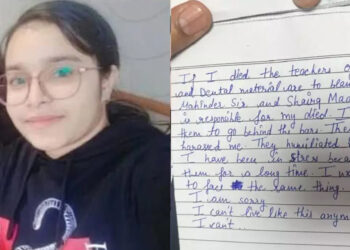 If I died the teachers o
and Dental material are to bla
Mahinder Sir and Shairg Maa
is responible for my died I
them to go behind the bars. The
harassed me. They humiliated
I have been in stress becau
them for a long time. I
to face the same thing.
I am sorry
I can't live like this anym
I can't..